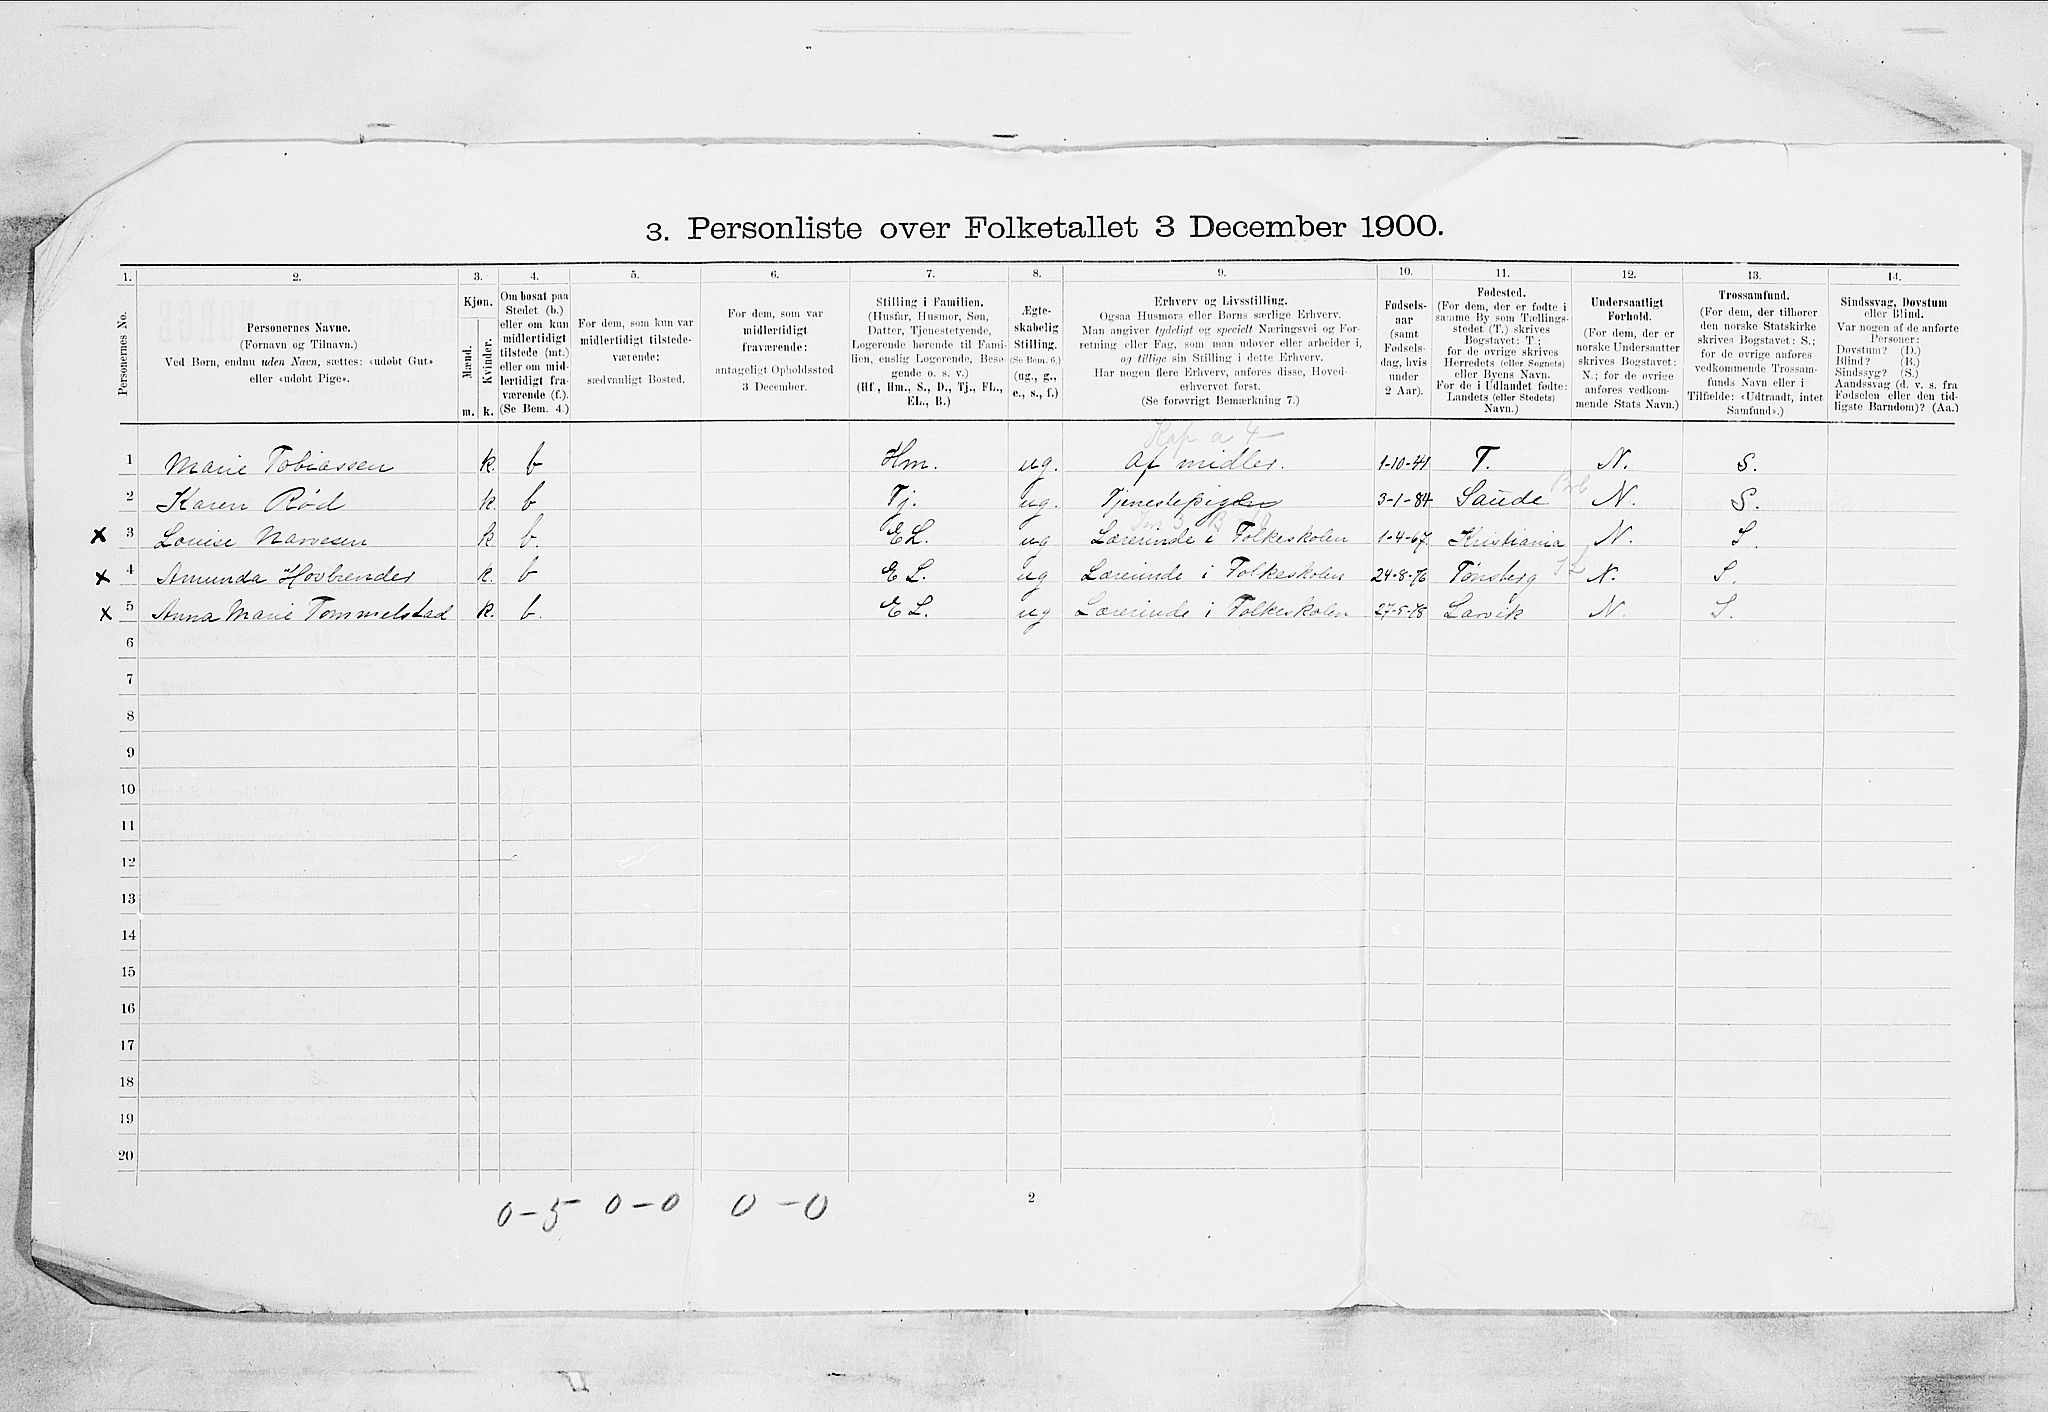 3. Personliste over Folketallet 3 December 1900.
1. 2. 3. 4. 5. 6. 7. 8. 9. 10. 11. 12. 13. 14.
Personernes No.
Personernes Navne.
(Fornavn og Tilnavn.)
Ved Børn, endnu uden Navn, sættes: «udøbt Gut»
eller «udøbt Pige».
Kjøn.
Mænd.
Kvinder.
m. k.
Om bosat paa
Stedet (b.)
eller om kun
midlertidigt
tilstede (mt.)
eller om mid-
lertidigt fra-
værende (f.).
(Se Bem. 4.)
For dem, som kun var
midlertidigt tilstede-
værende:
sædvanligt Bosted.
For dem, som var
midlertidigt
fraværende:
antageligt Opholdssted
3 December.
Stilling i Familien.
(Husfar, Husmor, Søn,
Datter, Tjenestetyende,
Logerende hørende til Fami-
lien, enslig Logerende, Besø-
gende o. s. v.)
(Hf., Hm., S., D., Tj., FL.,
EL., B.)
Ægte-
skabelig
Stilling.
(Se Bem. 6.)
(ug., g.,
e., s., f.)
Erhverv og Livsstilling.
Ogsaa Husmors eller Børns særlige Erhverv.
Man angiver tydeligt og specielt Næringsvei og For-
retning eller Fag, som man udøver eller arbeider i,
og tillige sin Stilling i dette Erhverv.
Har nogen flere Erhverv, anføres disse, Hoved-
erhvervet først.
(Se forøvrigt Bemærkning 7.)
Fødsels-
aar
(samt
Fødsels-
dag, hvis
under
2 Aar).
Fødested.
(For dem, der er fødte i
samme By som Tællings-
stedet (T.) skrives
Bogstavet: T.;
for de øvrige skrives
Herredets (eller Sognets)
eller Byens Navn.
For de i Udlandet fødte:
Landets (eller Stedets)
Navn.)
Undersaatligt
Forhold.
(For dem, der er
norske Undersaatter
skrives Bogstavet:
N.; for de øvrige
anføres vedkom-
mende Stats Navn.)
Trossamfund.
(For dem, der tilhører
den norske Statskirke
skrives Bogstavet: S.;
for de øvrige anføres
vedkommende Trossam-
funds Navn eller i
Tilfælde: «Udtraadt, intet
Samfund».)
Sindssvag, Døvstum
eller Blind.
Var nogen af de anførte
Personer:
Døvstum? (D.)
Blind? (B.)
Sindssyg? (S.)
Aandssvag (d. v. s. fra
Fødselen eller den tid-
ligste Barndom)? (Aa.)
Kap a 4
1 Marie Tobiassen k. b Hm. ug. Af midler. 1-10-44 T. N. S.
2 Karen Rød k. b Tj. ug. Tjenestepigen 3-1-84 Saude N. S.
x 3 Louise Narvesen k. b. EL. ug Lærerinde i Folkeskolen 1-4-67 Kristiania N. S.
x 4 Amunda Hovbrender k. b EL. ug Lærerinde i Folkeskolen 24-8-76 Tønsberg N. S.
x 5 Anna Marie Tommelstad k. b. EL. ug Lærerinde i Folkeskolen 27-5-78 Larvik N. S.
6
7
8
9
10
11
12
13
14
15
16
17
18
19
20
0-5 0-0 0-0
2